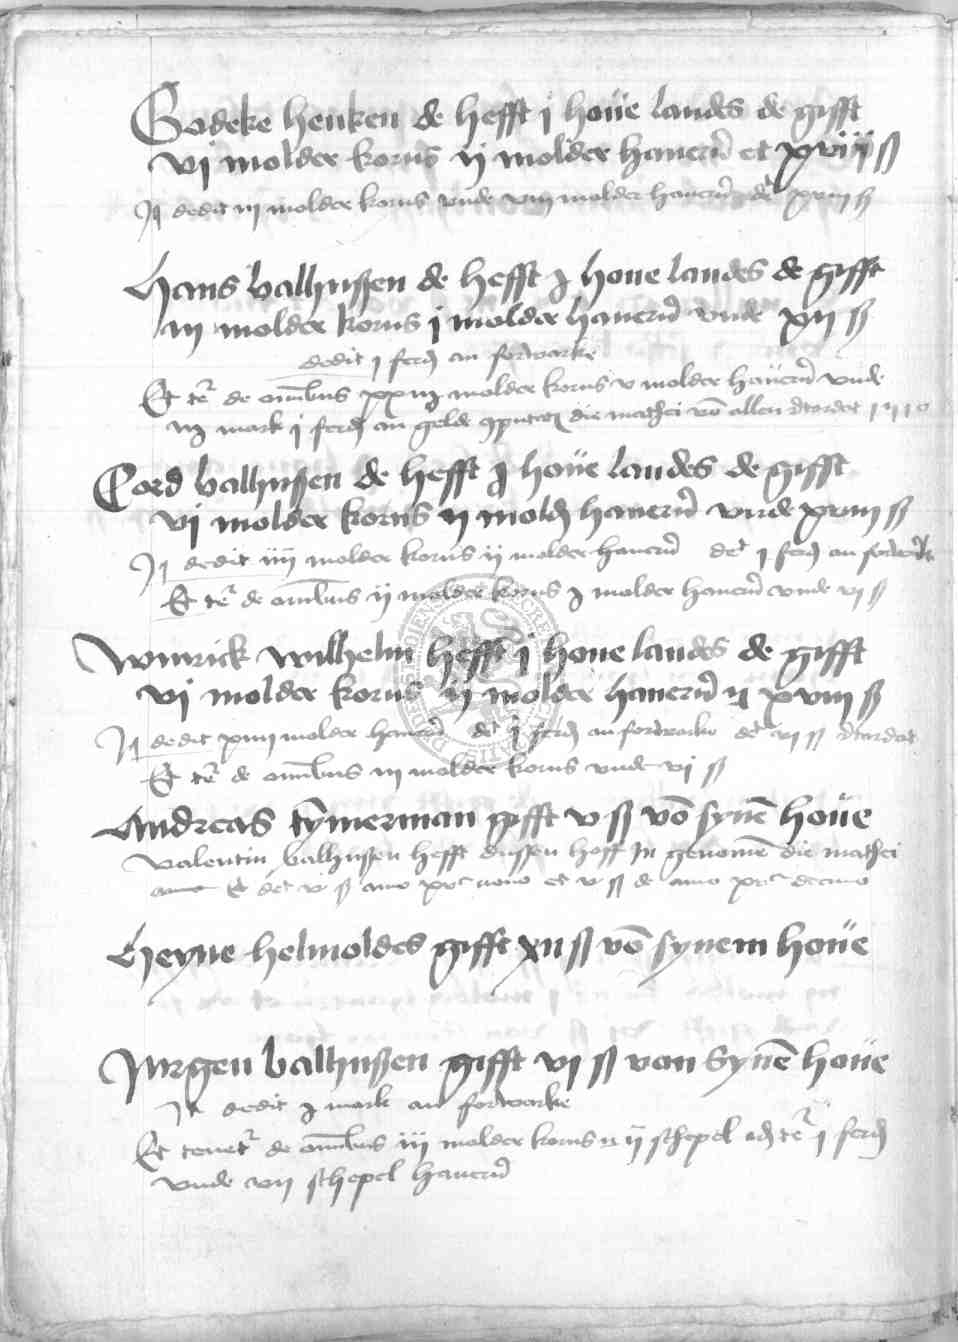 Godeke henken de hefft j houe landes de gifft
vj molder korns ij molder hauern et xviij ß
It dedit iij molder korns vnde viij molder hauern det xviij ß
Hans balhußen de hefft j houe landes de gifft
iij molder korns j molder hauern vnde xij ß
dedit j ferd an forwarke
Et te de omnibus xxiij molder korns v molder hauern vnde
iij mark j ferd an gelde die mathei vo allen
Cord balhußen de hefft j houe landes de gifft
vj molder korns ij mold hauern vnde xviij ß
It dedit iiij molder korns ij molder hauern det j ferd an
Et te de omnibus ij molder korns j molder hauern vnde vj ß
Winrick wilhelm hefft j houe landes de gifft
vj molder korns ij molder hauern xviij ß
It dedit xiiij molder hauern det j ferd an forwarke det vij ß
Et te de omnibus iij molder korns vnde vj ß
Andreas tymerman gifft v ß vo syne houe
Valentin balhußen hefft dussen hoff in genome die mathei
Et det vj ß anno nono et v ß de anno decimo
Heyne helmoldes gifft xij ß vo synem houe
Jurgen balhußen gifft vj ß van syne houe
It dedit j mark an forwarke
Et tenet de omnibus iij molder korns ij schepel te j ferd
vnde vij schepel hauern